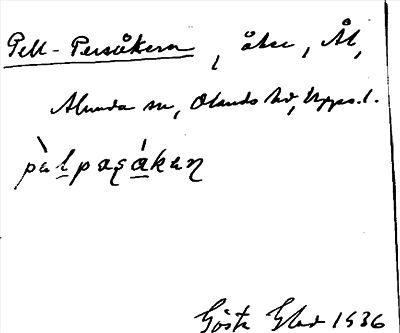 Pell-Persåkern, åker, Ål,
Alunda sn, Olands hd, Upps. l.
pὰlpaşákaɳ
Gösta Eled 1936